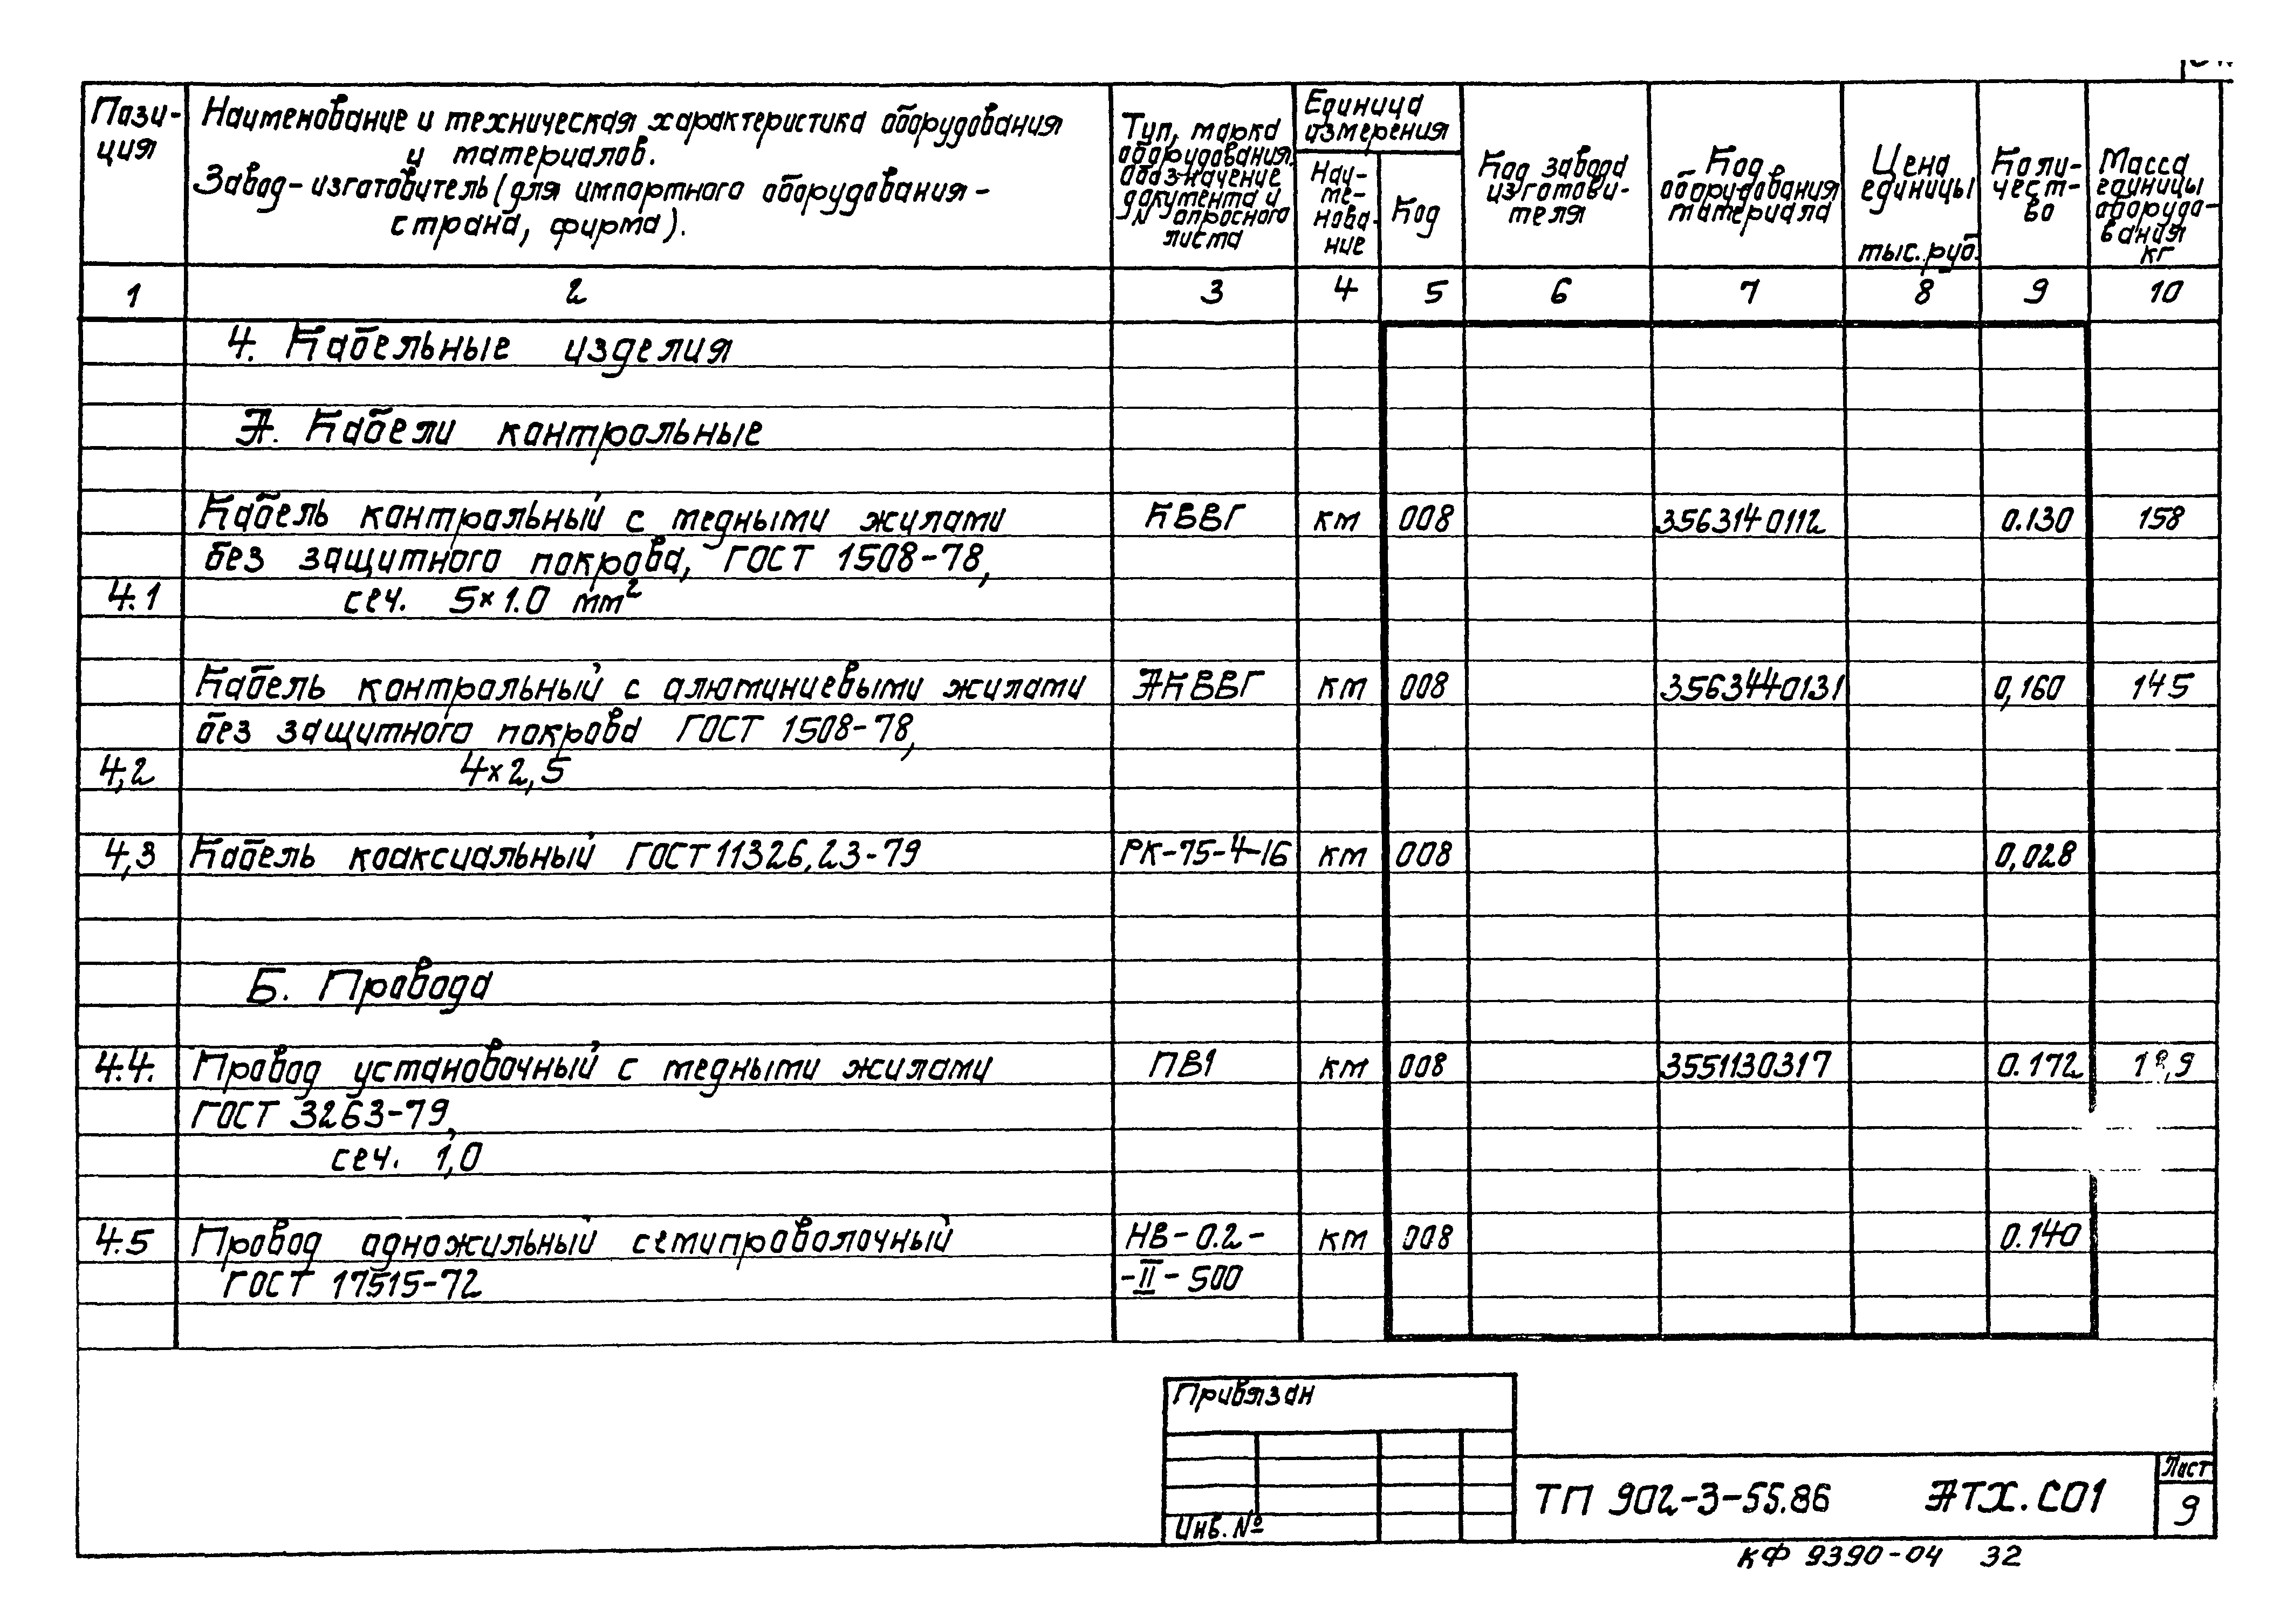 Пози-
ция
Наименование и техническая характеристика оборудования
и материалов.
Завод-изготовитель (для импортного оборудования-
страна, фирма).
Тип, марка
оборудования,
обозначение
документа и
№ опросного
листа
Единица
измерения
Наи-
ме-
нова-
ние
Код
Код завода
изготови-
теля
Код
оборудования
материала
Цена
единицы
тыс. руб.
Коли-
чест-
во
Масса
единицы
оборудо-
вания
кг
1 2 3 4 5 6 7 8 9 10
4. Кабельные изделия
А. Кабели контрольные
Кабель контрольный с медными жилами КВВГ км 008 3563140112 0.130 158
без защитного покрова, ГОСТ 1508-78,
4.1 сеч. 5×1.0 мм²
Кабель контрольный с алюминиевыми жилами АКВВГ км 008 3563440131 0,160 145
без защитного покрова ГОСТ 1508-78,
4,2 4×2,5
4,3 Кабель коаксиальный ГОСТ 11326.23-79 РК-75-4-16 км 008 0,028
Б. Провода
4.4. Провод установочный с медными жилами ПВ1 км 008 3551130317 0.172
ГОСТ 3263-79,
сеч. 1,0
4.5 Провод одножильный семипроволочный НВ-0.2- км 008 0.140
ГОСТ 17515-72 -II-500
Привязан
Инв. №
ТП 902-3-55.86 АТХ.СО1
Лист
9
КФ 9390-04 32